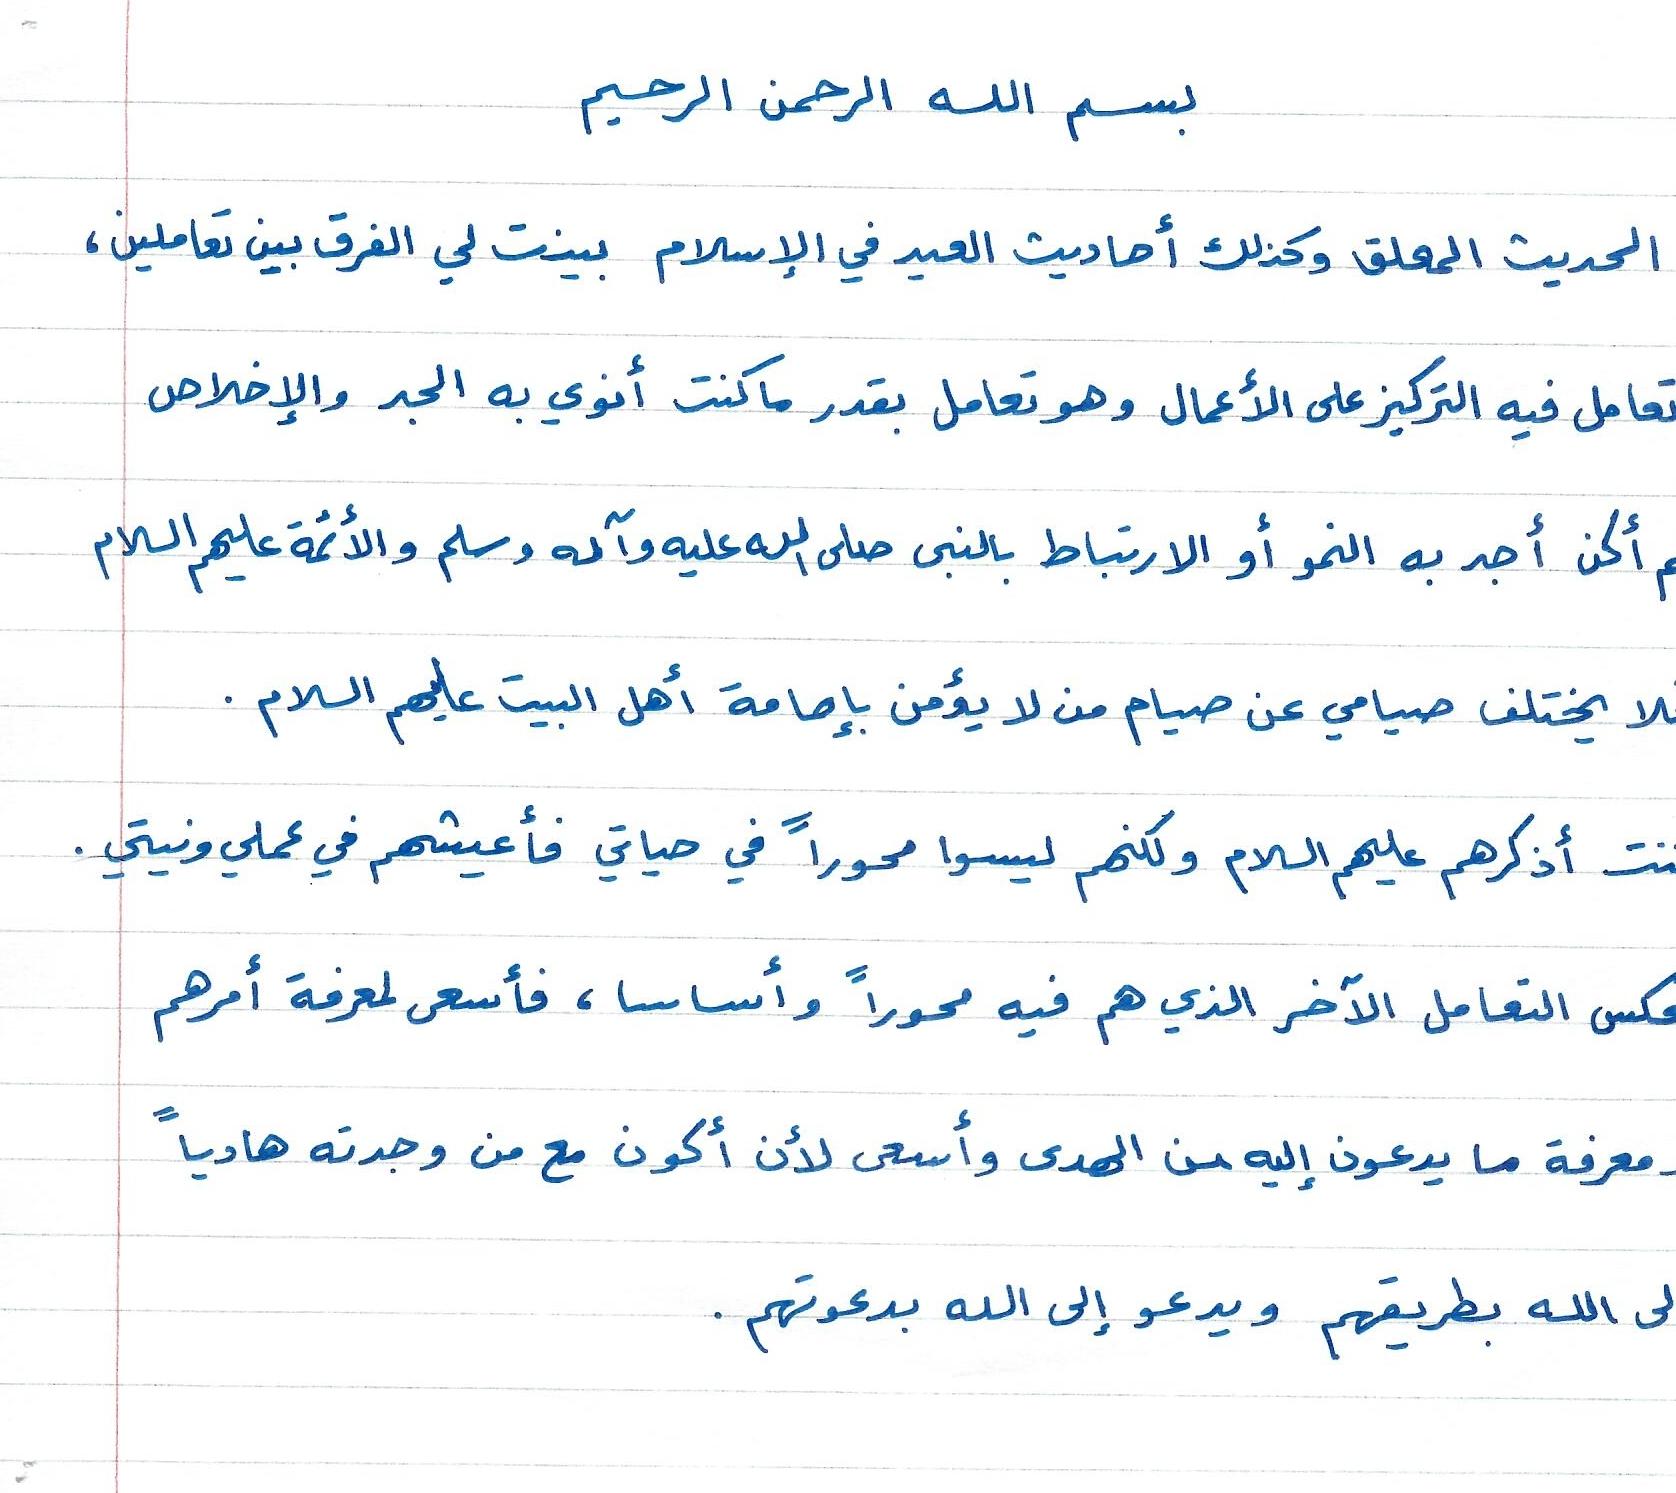 بسم الله الرحمن الرحيم
الحديث المعلق وكذلك أحاديث العيد في الإسلام بينت لي الفرق بين تعاملين،
تعامل فيه التركيز على الأعمال وهو تعامل بقدر ما كنت أنوي به الجد والإخلاص
م أكن أجد به النمو أو الارتباط بالنبي صلى الله عليه وآله وسلم والأئمة عليهم السلام
فلا يختلف صيامي عن صيام من لا يؤمن بإمامة أهل البيت عليهم السلام .
نت أذكرهم عليهم السلام ولكنهم ليسوا محوراً في حياتي فأعيشهم في عملي ونيتي .
عكس التعامل الآخر الذي هم فيه محوراً وأساسا، فأسعى لمعرفة أمرهم
معرفة ما يدعون إليه من الهدى وأسعى لأن أكون مع من وجدته هادياً
لى الله بطريقهم ويدعو إلى الله بدعوتهم .